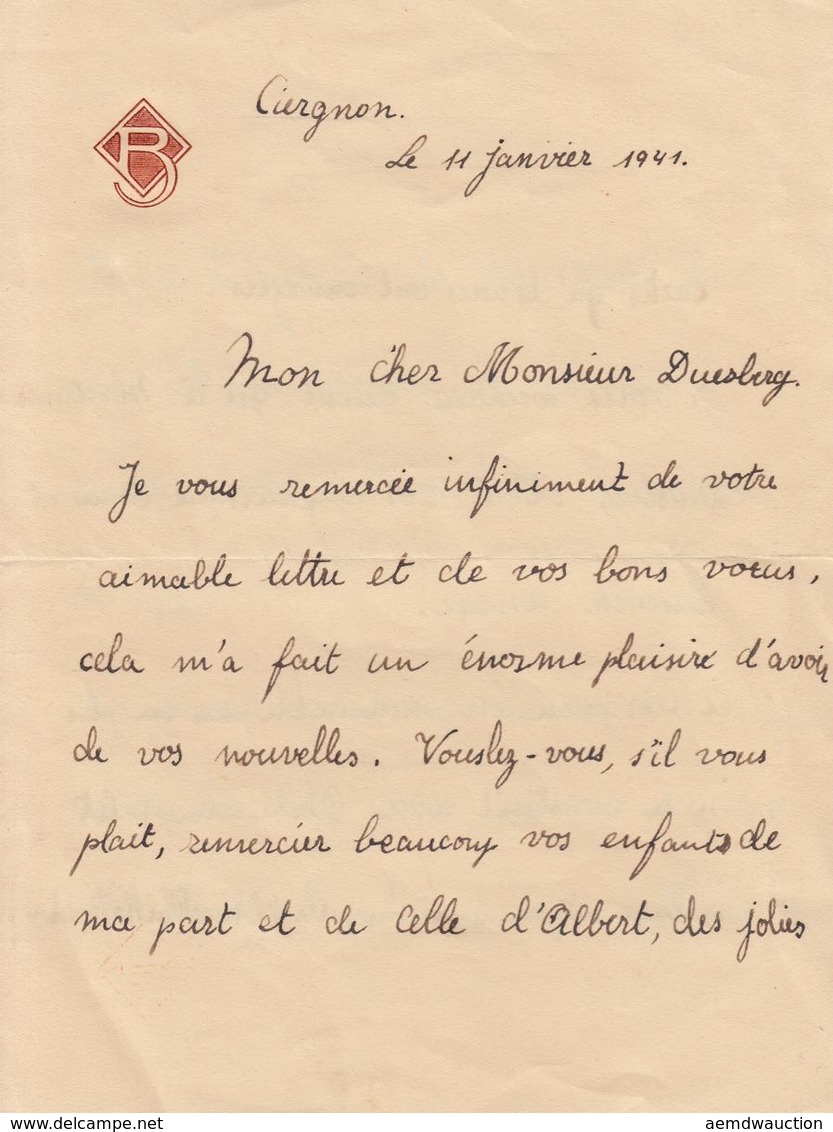 Ciergnon.
Le 11 janvier 1941.
Mon cher Monsieur Duesberg.
Je vous remercie infiniment de votre
aimable lettre et de vos bons voeus,
cela m'a fait un énorme plaisire d'avoir
de vos nouvelles. Vouslez-vous, s'il vous
plait, remercier beaucoup vos enfants de
ma part et de celle d'Albert, des jolies
www.delcampe.net
aemdwauction